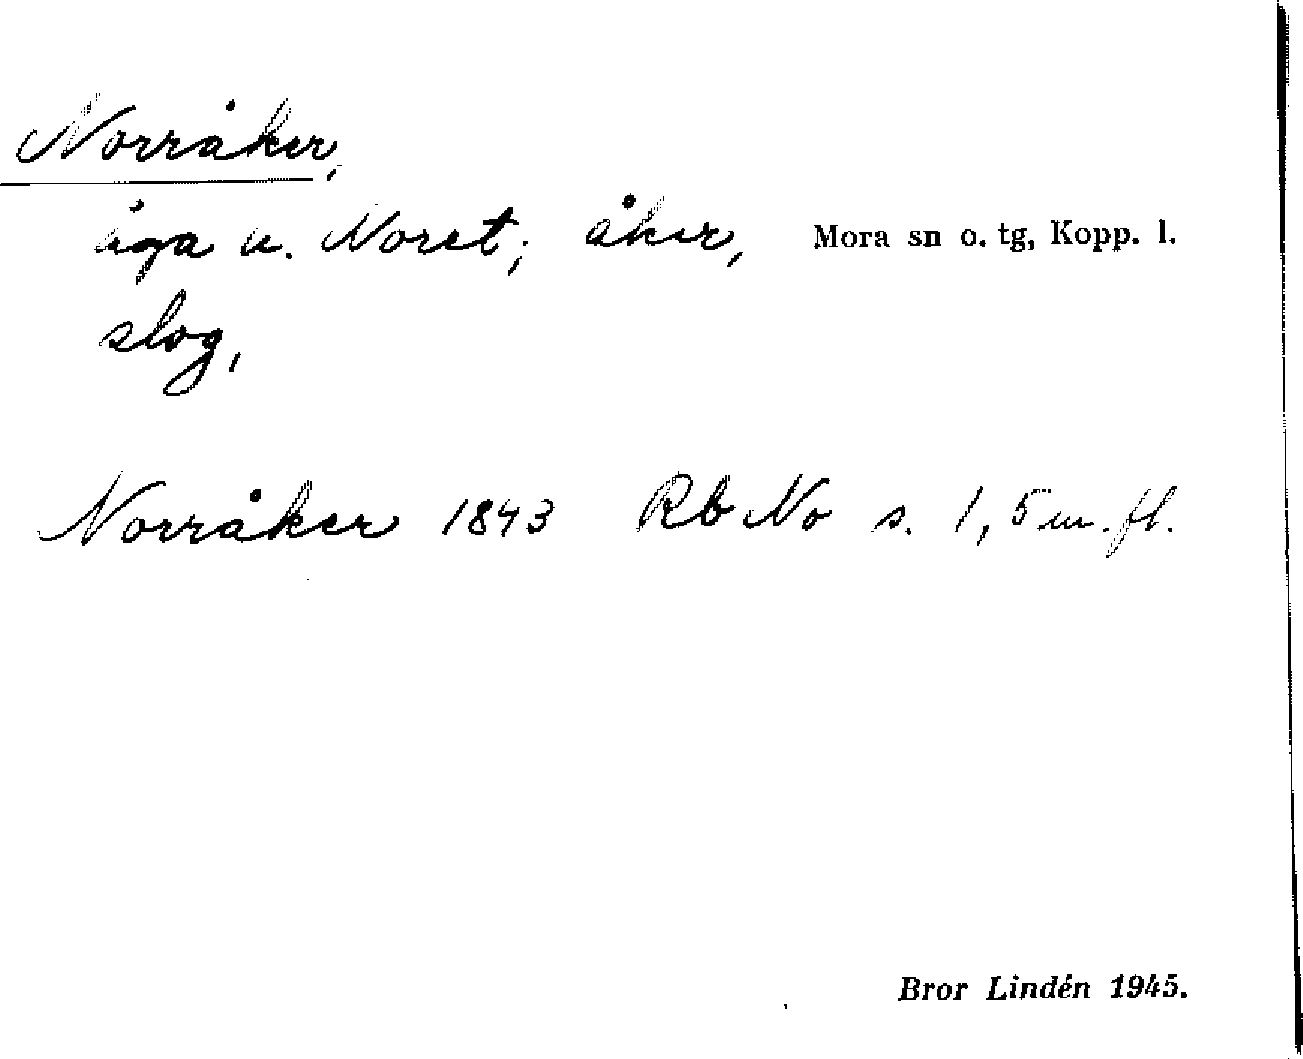 Norråker,
äga u. Noret; åker, Mora sn o. tg, Kopp. l.
slog,
Norråker 1843 Rb No s. 1, 5 m. fl.
Bror Lindén 1945.